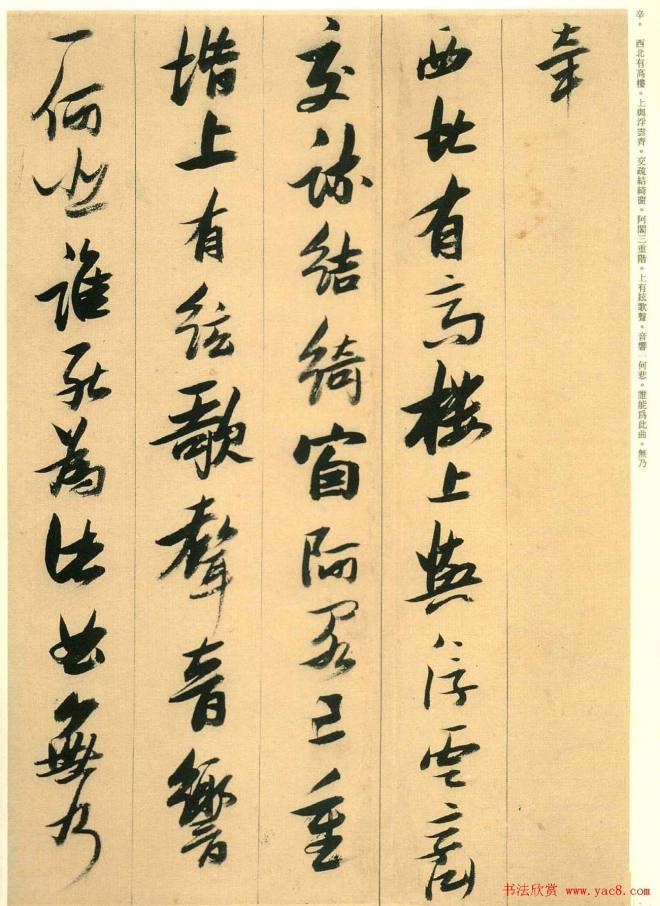 辛。 西北有高樓。上與浮雲齊。交疏結綺窗。阿閣三重階。上有絃歌聲。音響一何悲。誰能為此曲。無乃
辛
西北有高樓上與浮雲齊
交疏結綺窗阿閣三重
堦上有絃歌聲音響
一何悲誰能為此曲無乃
书法欣赏 www.yac8.com